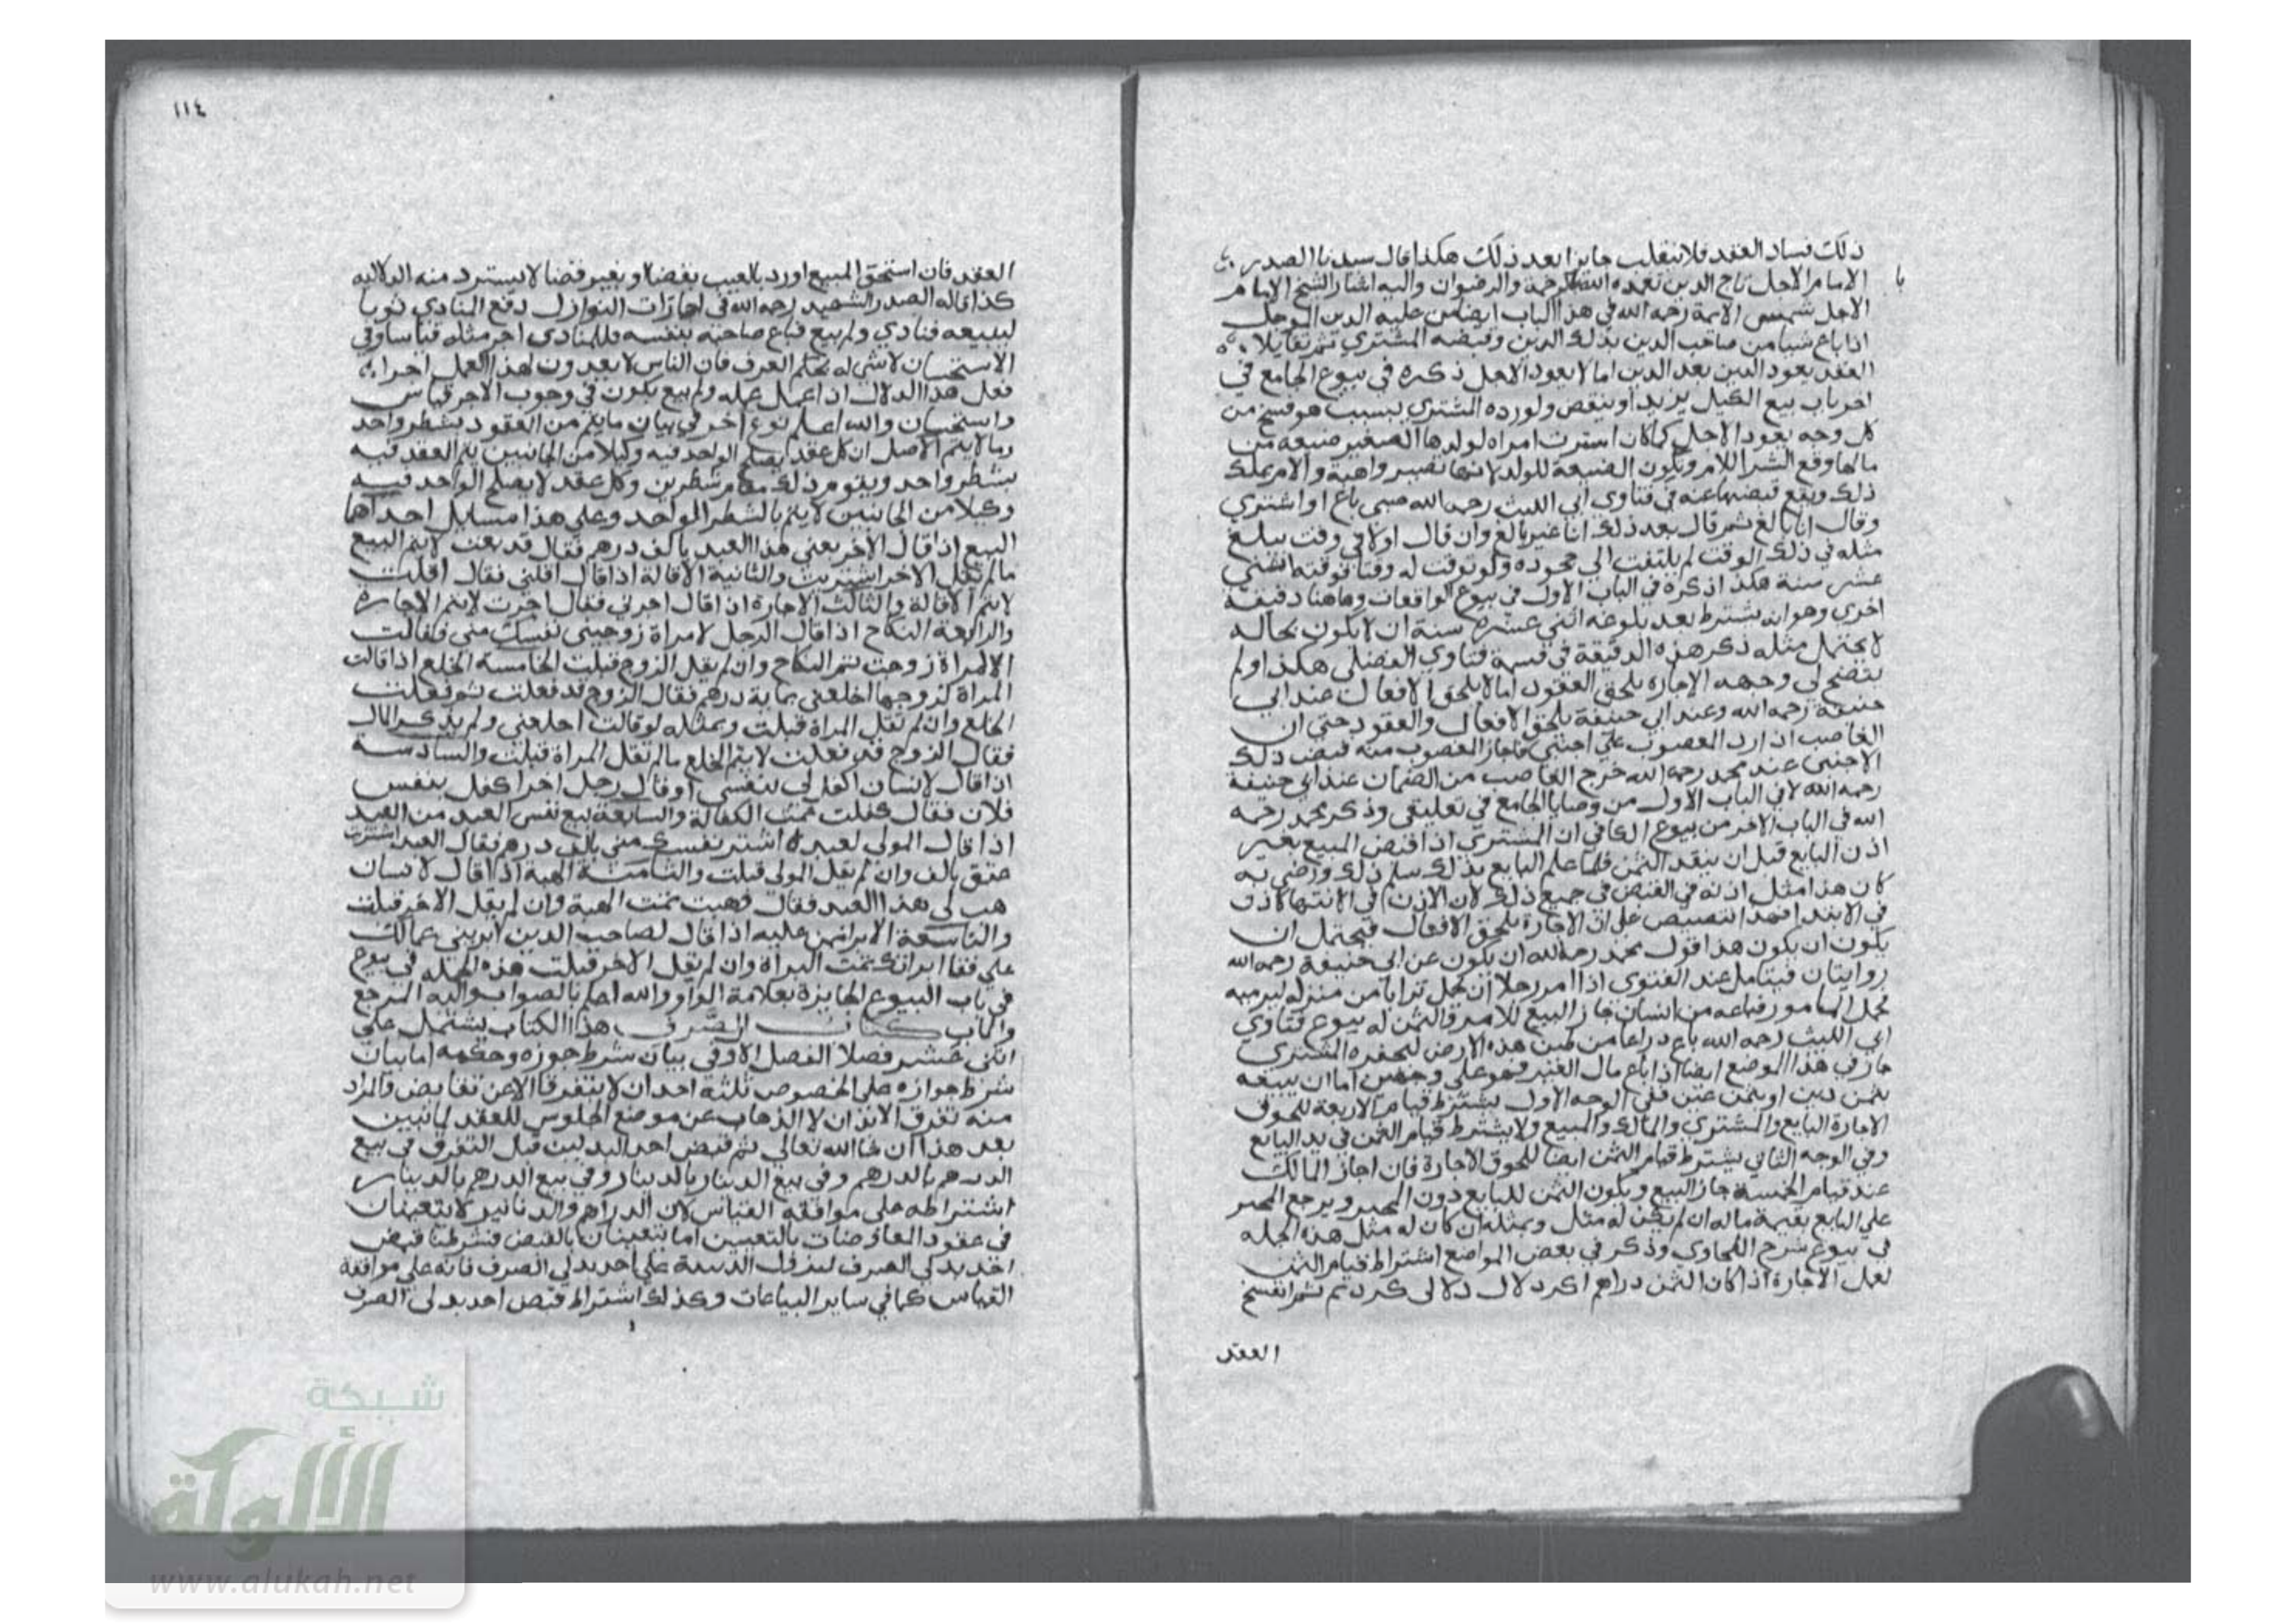 ذلك فساد العقد فلا ينقلب جايزا بعد ذلك هكذا قال سيدنا الصدر
الامام الاجل تاج الدين تغمده الله بالرحمة والرضوان واليه اشار الشيخ الامام
با
الاجل شمس الايمة رحمه الله في هذا الباب ايضا من عليه الدين الموجل
اذا باع شيا من صاحب الدين بذلك الدين وقبضه المشتري ثم تقايلا
العقد يعود الدين بعد الدين اما لا يعود الاجل ذكره في بيوع الجامع في
اخر باب بيع الكيل يزيد او ينقص ولو رده المشتري بسبب هو فسخ من
كل وجه يعود الاجل كما كان اشترت امراة لولدها الصغير ضيعة من
مالها وقع الشرا للام وتكون الضيعة للولد لانها تصير واهبة والام تملك
ذلك ويقع قبضها عنه في فتاوى ابي الليث رحمه الله صبي باع او اشتري
وقال انا بالغ ثم قال بعد ذلك انا غير بالغ وان قال اولا في وقت يبلغ
مثله في ذلك الوقت لم يلتفت الي جحوده ولو توقت له وقتا فوقته اثني
عشر سنة هكذا ذكره في الباب الاول في بيوع الواقعات وهاهنا دقيقة
اخري وهو انه يشترط بعد بلوغه اثني عشرة سنة ان لا يكون بحاله
لا يحتمل مثله ذكر هذه الدقيقة في قسمة فتاوي الفضلي هكذا ولم
يتضح لي وجهه الاجازة تلحق العقود اما لا يلحق الافعال عند ابي
حنيفة رحمه الله وعند ابي حنيفة يلحق الافعال والعقود حتي ان
الغاصب اذا رد المغصوب علي اجنبي فاجاز المغصوب منه قبض ذلك
الاجنبي عند محمد رحمه الله خرج الغاصب من الضمان عند ابي حنيفة
رحمه الله لا في الباب الاول من وصايا الجامع في تعليقي وذكر محمد رحمه
الله في الباب الاخر من بيوع الكافي ان المشتري اذا قبض المبيع بغير
اذن البايع قبل ان ينقد الثمن فلما علم البايع بذلك سلم ذلك ورضي به
كان هذا مثل اذنه في القبض في جميع ذلك لان الاذن في الانتها كالاذن
في الابتدا فهذا تنصيص على ان الاجازة تلحق الافعال فيحتمل ان
يكون ان يكون هذا قول محمد رحمه الله ان يكون عن ابي حنيفة رحمه الله
روايتان فيتامل عند الفتوى اذا امر رجلا ان يحمل ترابا من منزله ليرميه
فحمل المامور فباعه من انسان جاز البيع للامر والثمن له بيوع فتاوي
ابي الليث رحمه الله باع ذراعا من طين هذه الارض ليحفره المشتري
جاز في هذا الموضع ايضا اذا باع مال الغير فهو علي وجهين اما ان يبيعه
بثمن دين او بثمن عين ففي الوجه الاول يشترط قيام الاربعة للحوق
الاجازة البايع والمشتري والمالك والمبيع ولا يشترط قيام الثمن في يد البايع
وفي الوجه الثاني يشترط قيام الثمن ايضا للحوق الاجازة فان اجاز المالك
عند قيام الخمسة جاز البيع ويكون الثمن للبايع دون المجيز ويرجع المجيز
علي البايع بقيمة ماله ان لم يكن له مثل وبمثله ان كان له مثل هذه الجملة
في بيوع شرح الطحاوي وذكر في بعض المواضع اشتراط قيام الثمن
لعمل الاجازة اذا كان الثمن دراهم اكر دلال دلالي كرد ثم انفسخ
العقد
١١٤
العقد فان استحق المبيع او رد بالعيب بقضا او بغير قضا لا يسترد منه الدلالية
كذا قاله الصدر الشهيد رحمه الله في اجازات النوازل دفع المنادي ثوبا
ليبيعه فنادي ولم يبع فباع صاحبه بنفسه فللمنادي اجر مثله قياسا وفي
الاستحسان لا شي له بحكم العرف فان الناس لا يعدون لهذا العمل اجرا
فعل هذا الدلال اذا عمل عمله ولم يبع يكون في وجوب الاجر قياس
واستحسان والله اعلم نوع اخر في بيان ما يتم من العقود بشطر واحد
وما لا يتم الاصل ان كل عقد يصلح الواحد فيه وكيلا من الجانبين يتم العقد فيه
بشطر واحد ويقوم ذلك مقام شطرين وكل عقد لا يصلح الواحد فيه
وكيلا من الجانبين لا يتم بالشطر الواحد وعلي هذا مسايل احداها
البيع اذا قال الاخر بعني هذا العبد بالف درهم فقال قد بعت لا يتم البيع
ما لم يقل الاخر اشتريت والثانية الاقالة اذا قال اقلني فقال اقلت
لا يتم الاقالة والثالث الاجارة اذا قال اجرني فقال اجرت لا يتم الاجارة
والرابعة النكاح اذا قال الرجل لامراة زوجيني نفسك مني فقالت
الامراة زوجت يتم النكاح وان لم يقل الزوج قبلت الخامسة الخلع اذا قالت
المراة لزوجها اخلعني بماية درهم فقال الزوج قد فعلت
الخلع وان لم تقل المراة قبلت وبمثله لو قالت اخلعني ولم يذكر المال
فقال الزوج قد فعلت لا يتم الخلع ما لم تقل المراة قبلت والسادسة
اذا قال لانسان اكفل لي بنفسي او قال رجل اخر اكفل بنفس
فلان فقال كفلت تمت الكفالة والسابعة بيع نفس العبد من العبد
اذا قال المولى لعبده اشتر نفسك مني بالف درهم فقال العبد اشتريت
عتق بالف وان لم يقل المولى قبلت والثامنة الهبة اذا قال لانسان
هب لي هذا العبد فقال وهبت تمت الهبة وان لم يقل الاخر قبلت
والتاسعة الابرا من عليه اذا قال لصاحب الدين ابريني عما لك
علي فقا ابراتك تمت البراة وان لم يقل الاخر قبلت هذه الجملة في بيوع
في باب البيوع الجايزة بعلامة الواو والله اعلم بالصواب واليه المرجع
والماب كتاب الصرف هذا الكتاب يشتمل علي
اثنى عشر فصلا الفصل الاول في بيان شرط جوازه وحكمه اما بيان
شرط جوازه علي الخصوص ثلثة احد ان لا يتفرقا الا عن تقابض والمراد
منه تفرق الابدان لا الذهاب عن موضع الجلوس للعقد لما نبين
بعد هذا ان شا الله تعالي ثم قبض احد البدلين قبل التفرق في بيع
الدرهم بالدرهم وفي بيع الدينار بالدينار وفي بيع الدرهم بالدينار
اشتراطه على موافقة القياس لان الدراهم والدنانير لا يتعينان
في عقود المعاوضات بالتعيين اما يتعينان بالقبض فشرطنا قبض
احد بدلي الصرف علي احد بدلي الصرف فانه علي موافقة
القياس كما في ساير البياعات وكذلك اشتراط قبض احد بدلي الصرف
شبكة
الألوكة
www.alukah.net